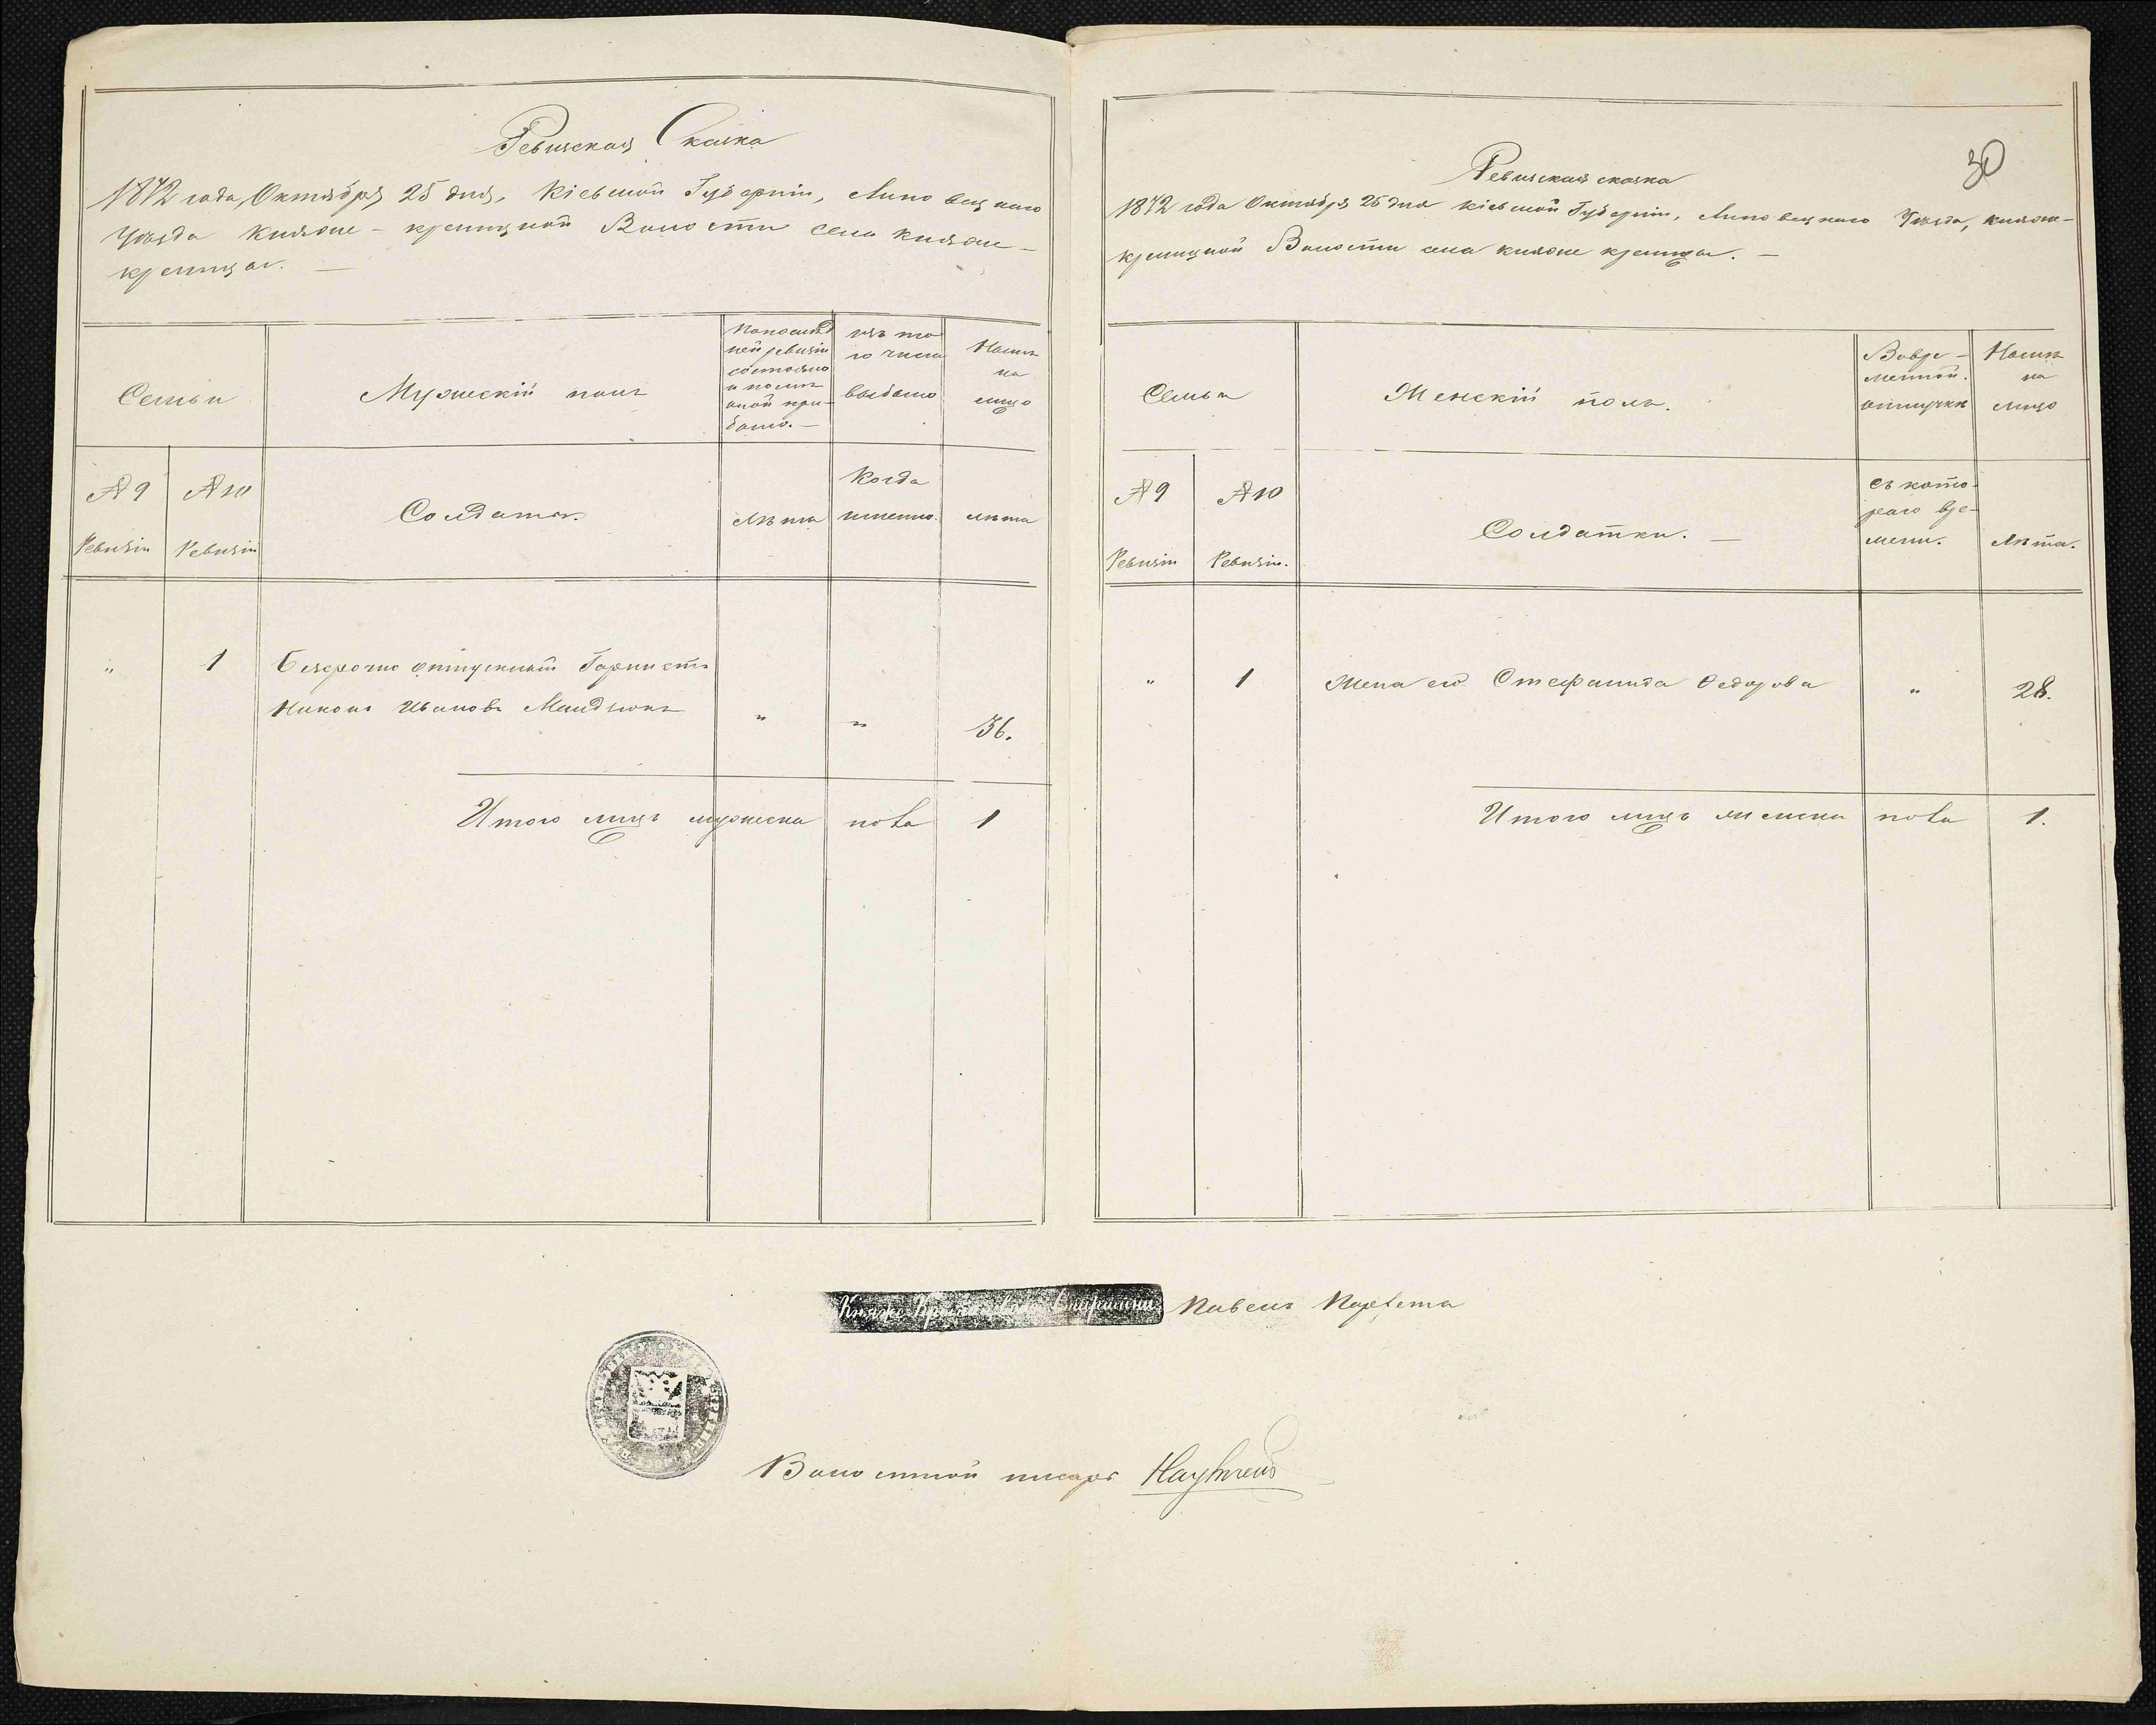 Ревизская Сказка
1872 года, Октября 25 дня, Кіевской Губерніи, Липовецкаго
Уѣзда Княже-криницкой Волости села Княже-
криницы. —
Семьи
Мужескій полъ
По послѣд
ней ревизіи
состояло
и послѣ
оной при-
было. —
изъ то
го числа
выбыло
Нынѣ
на
лицо
№ 9
Ревизіи
№ 10
Ревизіи
Солдаты.
Лѣта
Когда
именно.
лѣта
"
1
Безсрочно отпускной Горнистъ
Никонъ Ивановъ Мандзюкъ
"
"
36.
Итого лицъ мужеска пола 1
30
Ревизская сказка
1872 года Октября 25 дня Кіевской Губерніи, Липовецкаго Уѣзда, Княже-
криницкой Волости села Княже криницы. —
Семьи
Женскій полъ.
Во вре-
менной
отлучкѣ
Нынѣ
на
лицо
№ 9
Ревизіи
№ 10
Ревизіи.
Солдатки. —
Съ кото-
раго вре-
мени.
Лѣта.
"
1
Жена его Стефанида Федорова
"
28.
Итого лицъ женска пола 1.
Княже-Криницкій Старшина Павелъ
Волостной писарь